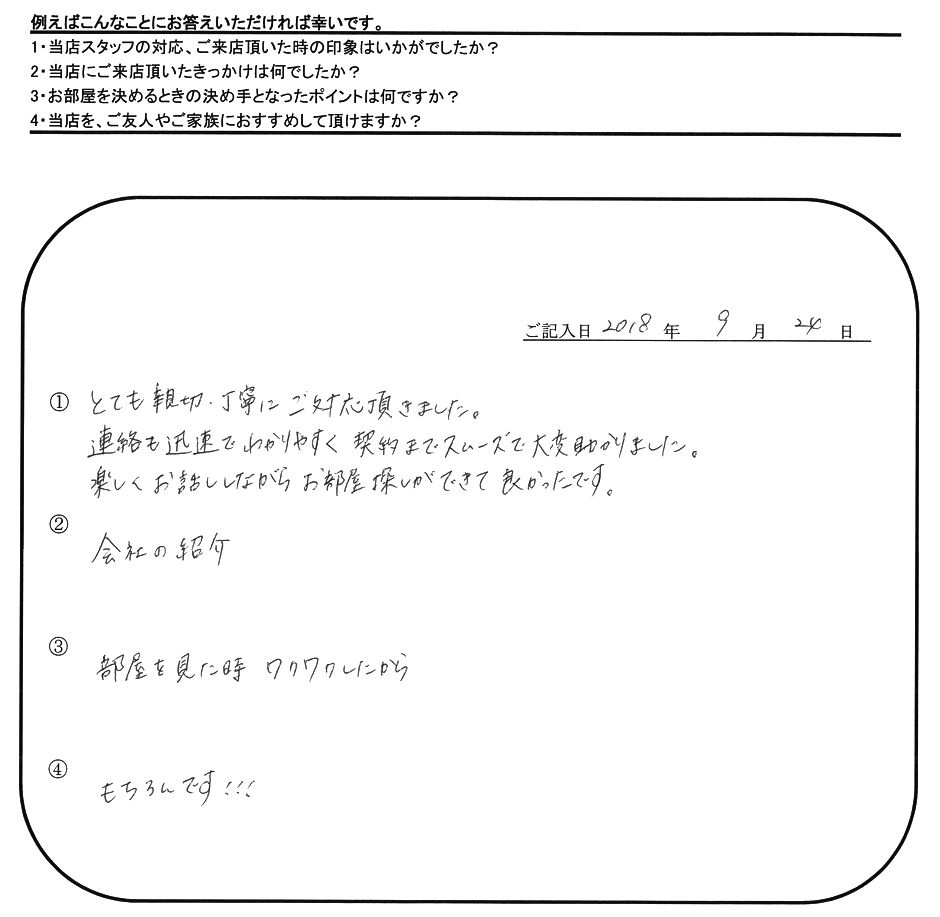 例えばこんなことにお答えいただければ幸いです。
1・当店スタッフの対応、ご来店頂いた時の印象はいかがでしたか？
2・当店にご来店頂いたきっかけは何でしたか？
3・お部屋を決めるときの決め手となったポイントは何ですか？
4・当店を、ご友人やご家族におすすめして頂けますか？
ご記入日 2018 年 9 月 24 日
① とても親切・丁寧にご対応頂きました。
連絡も迅速でわかりやすく契約までスムーズで大変助かりました。
楽しくお話ししながらお部屋探しができて良かったです。
②
会社の紹介
③
部屋を見た時ワクワクしたから
④
もちろんです!!!